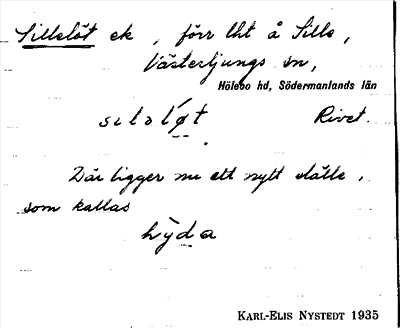 Sillelöt ek, förr lht å Sille,
Västerljungs sn,
Hölebo hd, Södermanlands län
Rivet.
Där ligger nu ett nytt ställe,
som kallas
KARL-ELIS NYSTEDT 1935